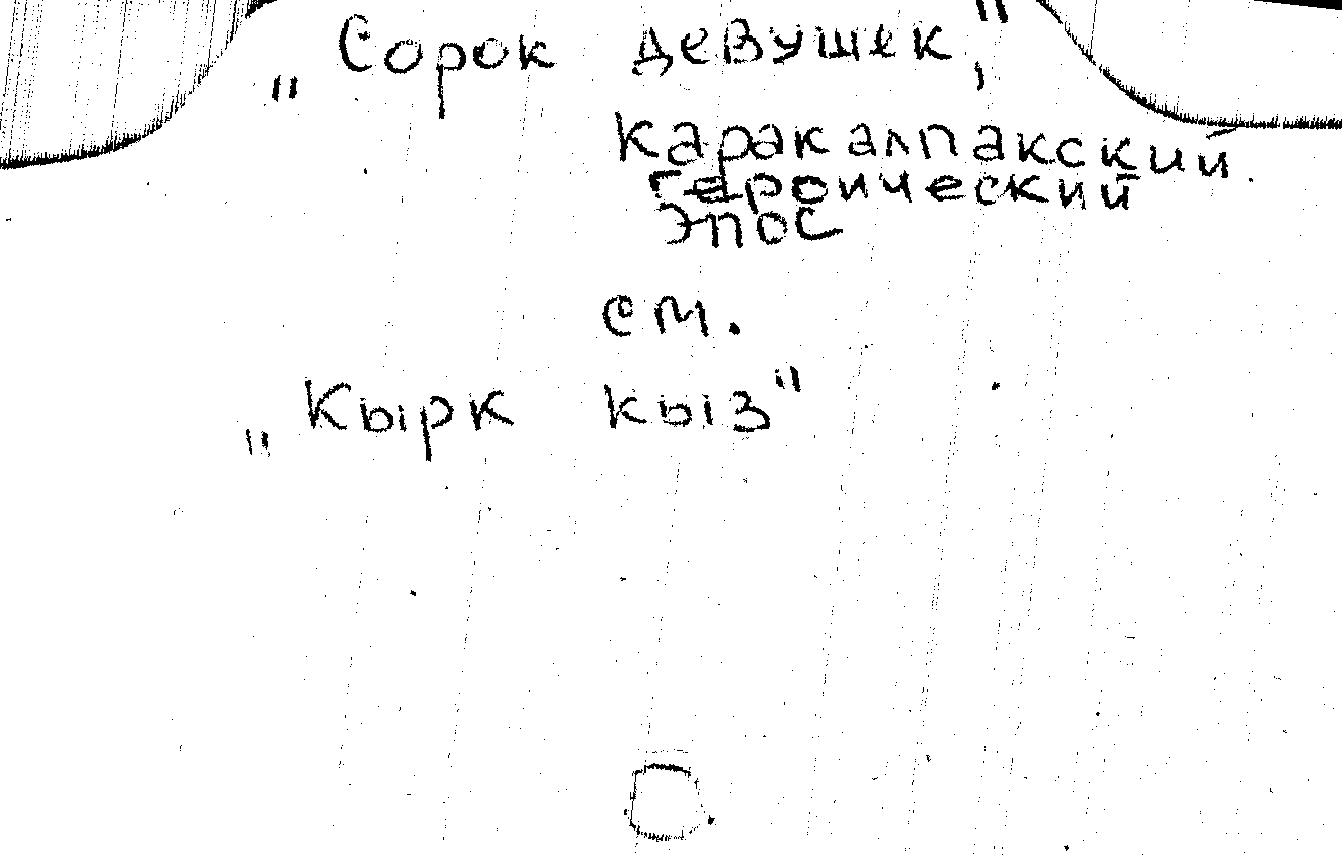 „Сорок девушек",
каракалпакский
героический
эпос
см.
„Кырк кыз"